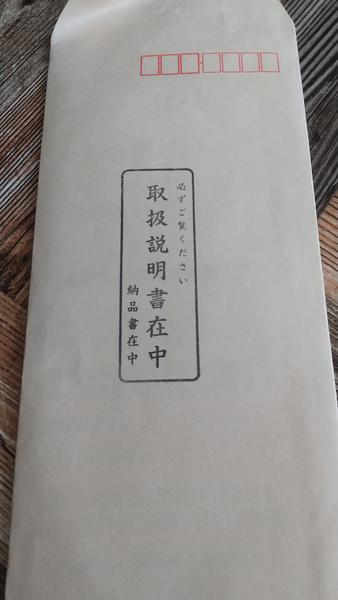 必ずご覧ください
取扱説明書在中
納品書在中